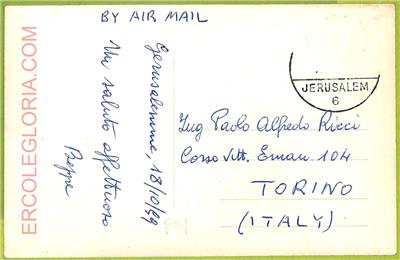 BY AIR MAIL
Gerusalemme, 18/10/59
Un saluto affettuoso
Beppe
JERUSALEM
6
Ing Paolo Alfredo Ricci
Corso Vitt. Eman 104
TORINO
(ITALY)
ERCOLEGLORIA.COM